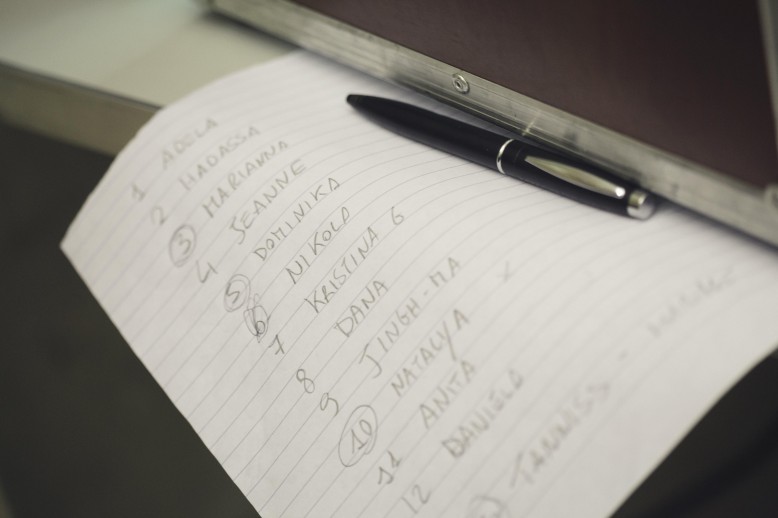 1 ADELA
2 HADASSA
3 MARIANNA
4 JEANNE
5 DOMINIKA
6 NIKOLD
7 KRISTINA G
8 DANA
9 JINGH-MA
10 NATALYA
11 ANITA
12 DANIELA